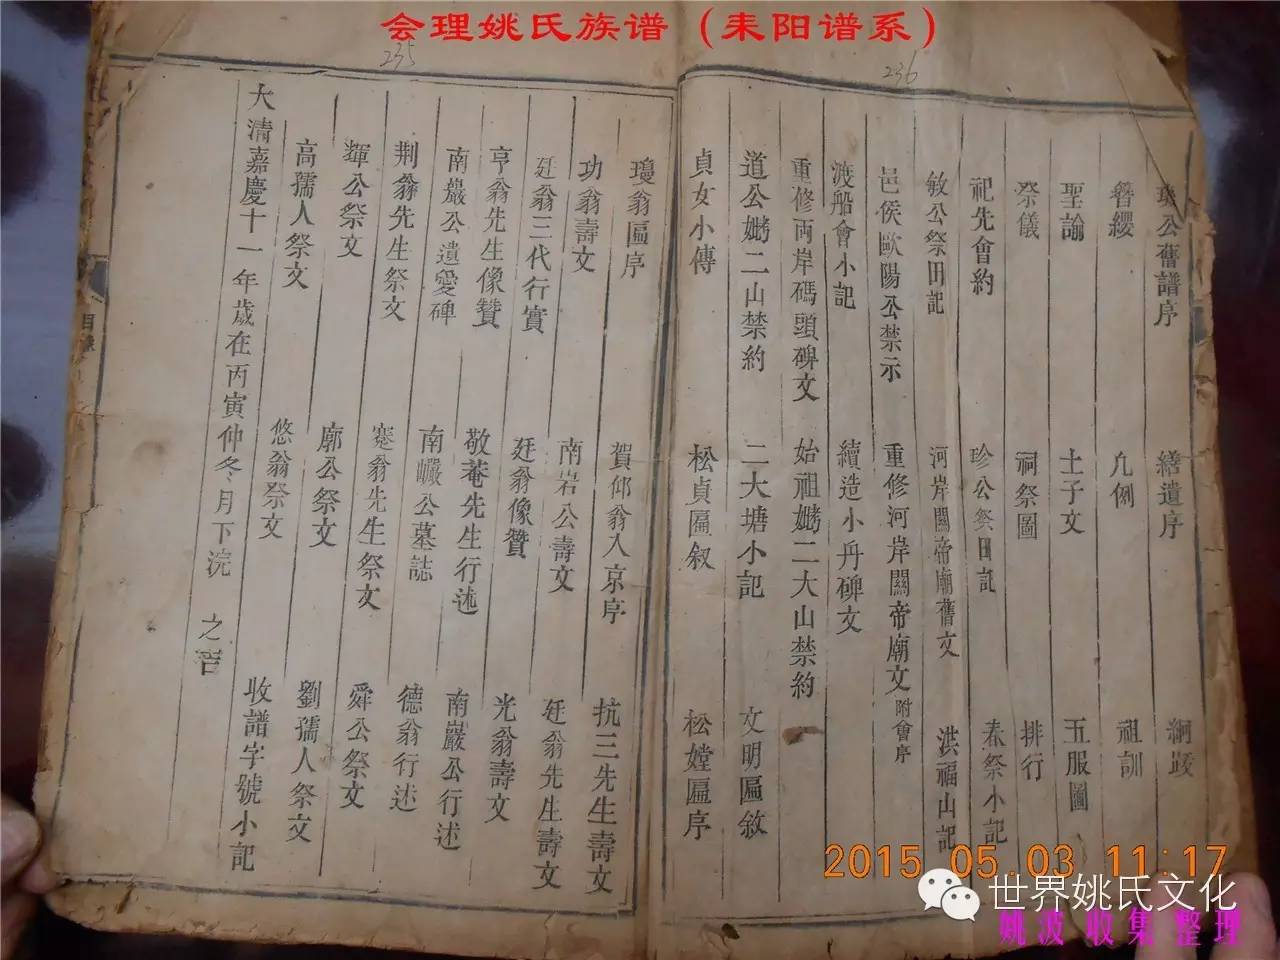 会理姚氏族谱（耒阳谱系）
235
236
公舊譜序 繕遺序
簪纓 凡例 祖訓
聖諭 土子文 五服圖
祭儀 祠祭圖 排行
祀先會約 珍公祭田記 春祭小記
敏公祭田記 河岸關帝廟舊文 洪福山記
邑侯歐陽公禁示 重修河岸關帝廟文附會序
渡船會小記 續造小舟碑文
重修両岸碼頭碑文 始祖㛠二大山禁約
道公㛠二山禁約 二大塘小記 文明匾敘
貞女小傳 松貞匾叙 松嫈匾序
瓊翁匾序 賀仰翁入京序 抗三先生壽文
功翁壽文 南岩公壽文 廷翁先生壽文
廷翁三代行實 廷翁像贊 光翁壽文
亨翁先生像贊 敬菴先生行述 南巖公行述
南巖公遺愛碑 南巖公墓誌 德翁行述
荆翁先生祭文 蹇翁先生祭文 舜公祭文
輝公祭文 廓公祭文 劉孺人祭文
高孺人祭文 悠翁祭文 收譜字號小記
大清嘉慶十一年歲在丙寅仲冬月下浣 之吉
目錄
2015.05.03 11:17
世界姚氏文化
姚波 收集 整理